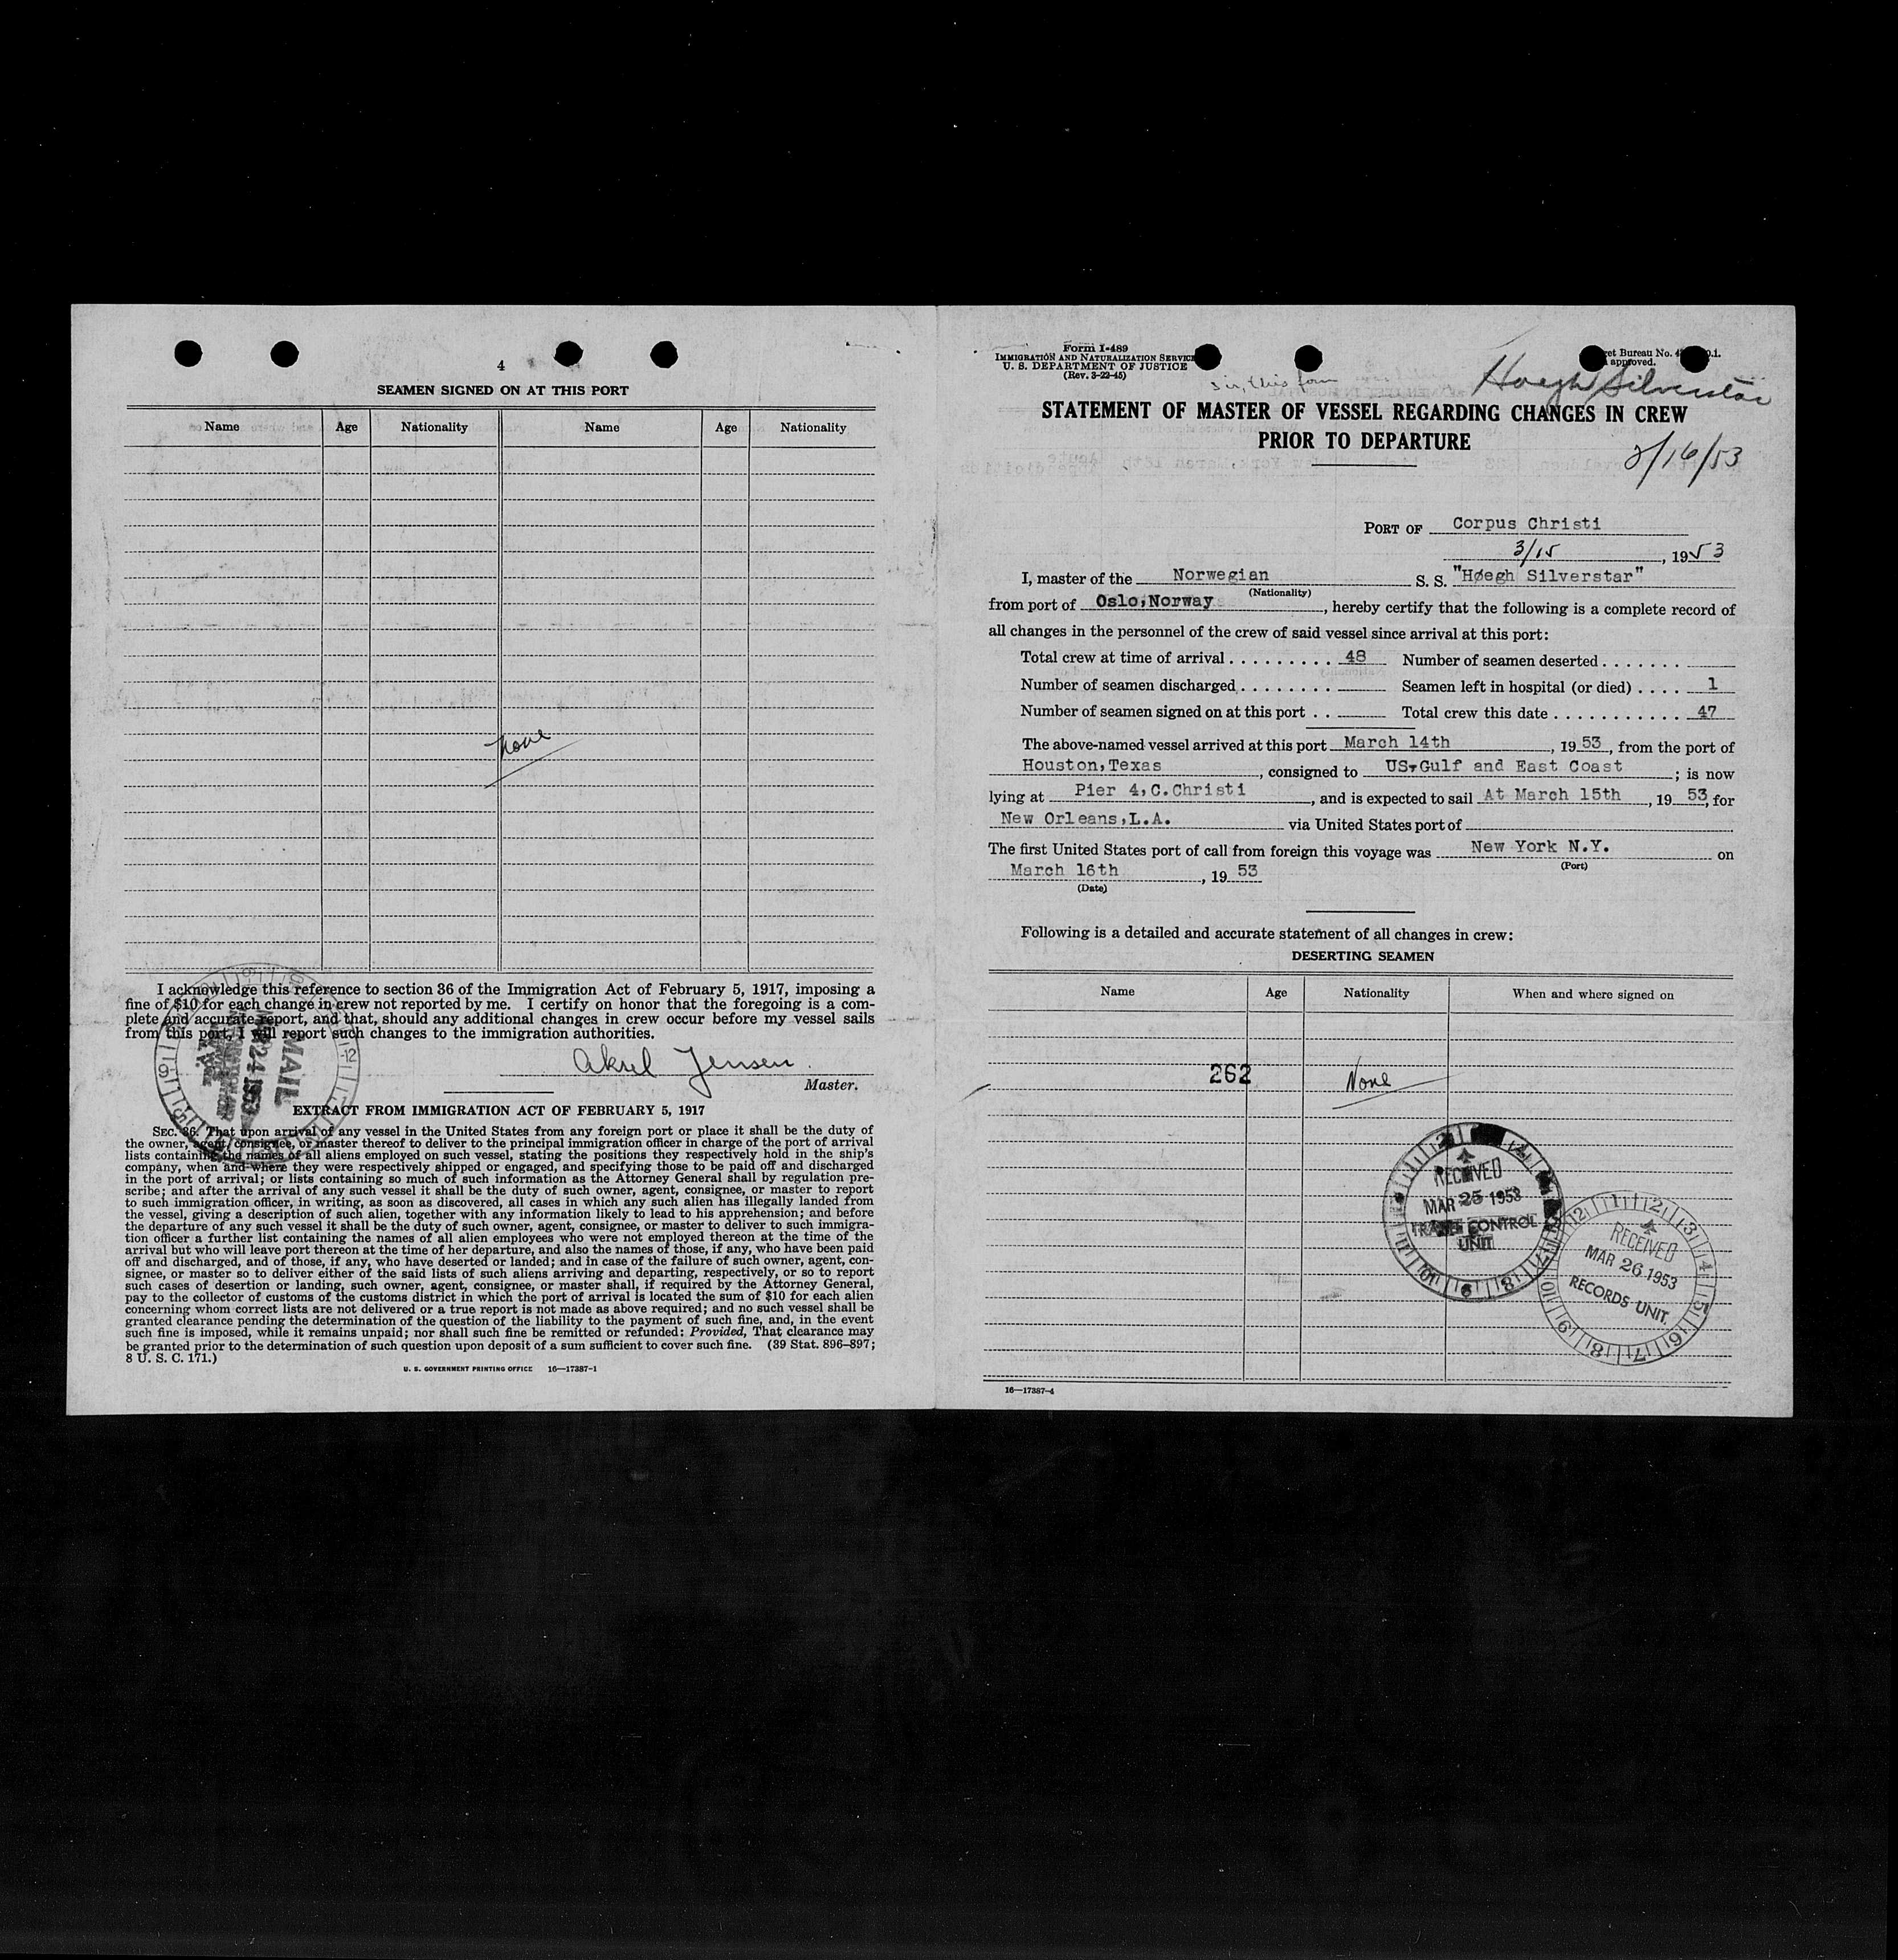 4
SEAMEN SIGNED ON AT THIS PORT
Name Age Nationality Name Age Nationality
None
I acknowledge this reference to section 36 of the Immigration Act of February 5, 1917, imposing a
fine of $10 for each change in crew not reported by me. I certify on honor that the foregoing is a com-
plete and accurate report, and that, should any additional changes in crew occur before my vessel sails
from this port, I will report such changes to the immigration authorities.
Aksel Jensen
Master.
MAIL
24 1953
EXTRACT FROM IMMIGRATION ACT OF FEBRUARY 5, 1917
SEC. 36. That upon arrival of any vessel in the United States from any foreign port or place it shall be the duty of
the owner, agent, consignee, or master thereof to deliver to the principal immigration officer in charge of the port of arrival
lists containing the names of all aliens employed on such vessel, stating the positions they respectively hold in the ship's
company, when and where they were respectively shipped or engaged, and specifying those to be paid off and discharged
in the port of arrival; or lists containing so much of such information as the Attorney General shall by regulation pre-
scribe; and after the arrival of any such vessel it shall be the duty of such owner, agent, consignee, or master to report
to such immigration officer, in writing, as soon as discovered, all cases in which any such alien has illegally landed from
the vessel, giving a description of such alien, together with any information likely to lead to his apprehension; and before
the departure of any such vessel it shall be the duty of such owner, agent, consignee, or master to deliver to such immigra-
tion officer a further list containing the names of all alien employees who were not employed thereon at the time of the
arrival but who will leave port thereon at the time of her departure, and also the names of those, if any, who have been paid
off and discharged, and of those, if any, who have deserted or landed; and in case of the failure of such owner, agent, con-
signee, or master so to deliver either of the said lists of such aliens arriving and departing, respectively, or so to report
such cases of desertion or landing, such owner, agent, consignee, or master shall, if required by the Attorney General,
pay to the collector of customs of the customs district in which the port of arrival is located the sum of $10 for each alien
concerning whom correct lists are not delivered or a true report is not made as above required; and no such vessel shall be
granted clearance pending the determination of the question of the liability to the payment of such fine, and, in the event
such fine is imposed, while it remains unpaid; nor shall such fine be remitted or refunded: Provided, That clearance may
be granted prior to the determination of such question upon deposit of a sum sufficient to cover such fine. (39 Stat. 896-897;
8 U. S. C. 171.)
U. S. GOVERNMENT PRINTING OFFICE 16—17387-1
Form I-489
IMMIGRATION AND NATURALIZATION SERVICE
U. S. DEPARTMENT OF JUSTICE
(Rev. 3-22-45)
Bureau No.
approved.
Hoegh Silverstar
STATEMENT OF MASTER OF VESSEL REGARDING CHANGES IN CREW
PRIOR TO DEPARTURE
2/16/53
PORT OF Corpus Christi
3/15, 1953
I, master of the Norwegian S. S. "Høegh Silverstar"
(Nationality)
from port of Oslo,Norway, hereby certify that the following is a complete record of
all changes in the personnel of the crew of said vessel since arrival at this port:
Total crew at time of arrival 48 Number of seamen deserted
Number of seamen discharged Seamen left in hospital (or died) 1
Number of seamen signed on at this port Total crew this date 47
The above-named vessel arrived at this port March 14th, 1953, from the port of
Houston,Texas, consigned to US.Gulf and East Coast; is now
lying at Pier 4,C.Christi, and is expected to sail At March 15th, 1953, for
New Orleans,L.A. via United States port of
The first United States port of call from foreign this voyage was New York N.Y. on
(Port)
March 16th, 1953
(Date)
Following is a detailed and accurate statement of all changes in crew:
DESERTING SEAMEN
Name Age Nationality When and where signed on
262 None
RECEIVED
MAR 25 1953
CONTROL
UNIT
RECEIVED
MAR 26 1953
RECORDS UNIT.
16—17387-4